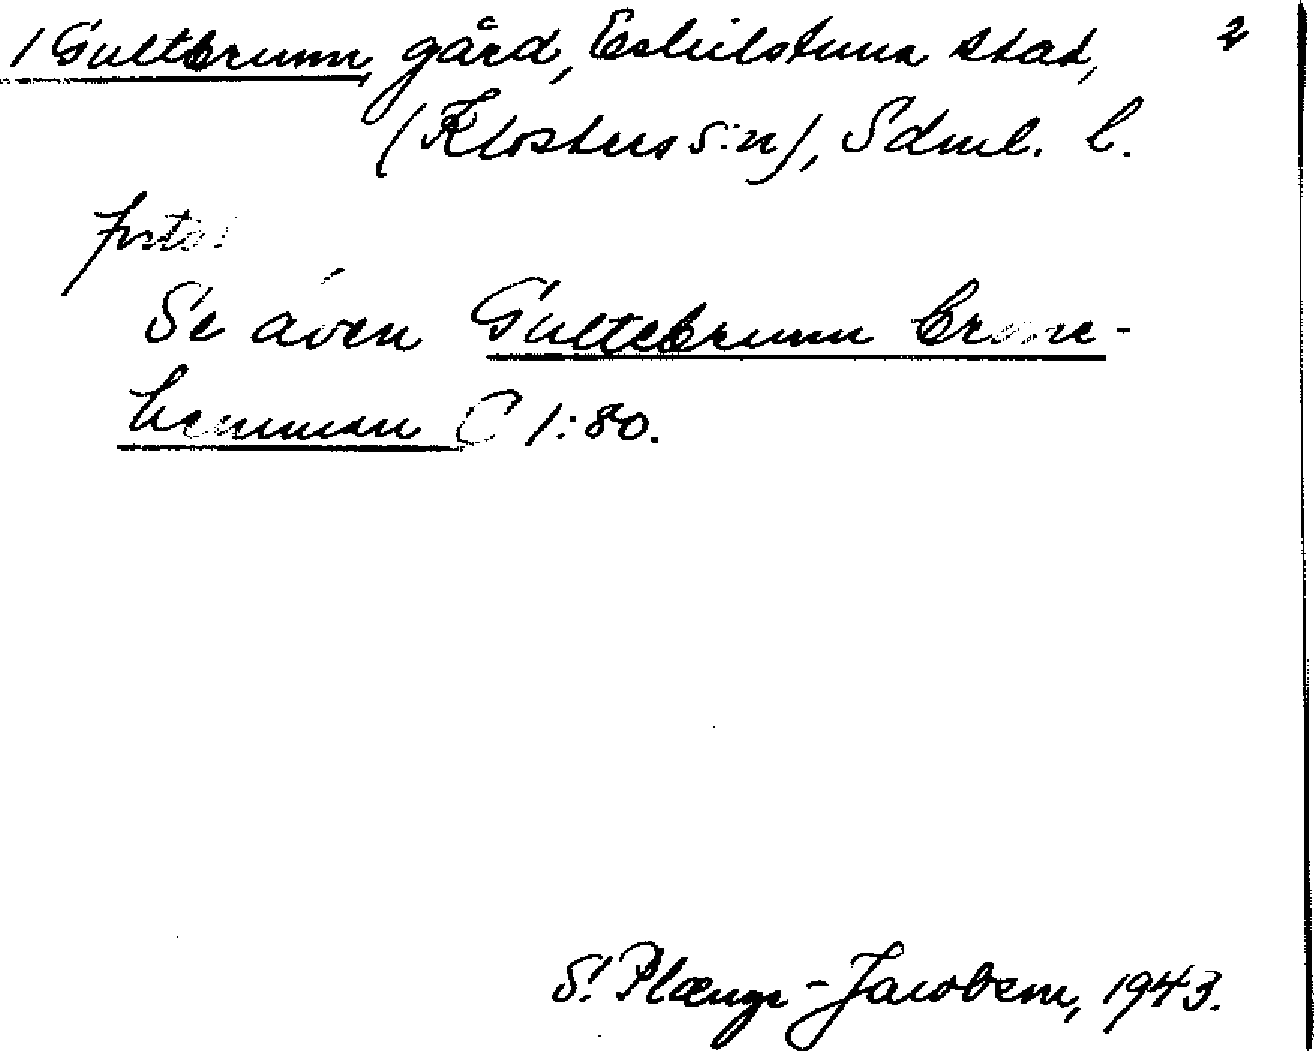 /Gultbrunn, gård, Eskilstuna stad, 2
(Klosters s:n), Sdml. l.
forts.
Se även Gultebrunn Crone-
hemman C 1:80.
S. Plænge-Jacobsen, 1943.